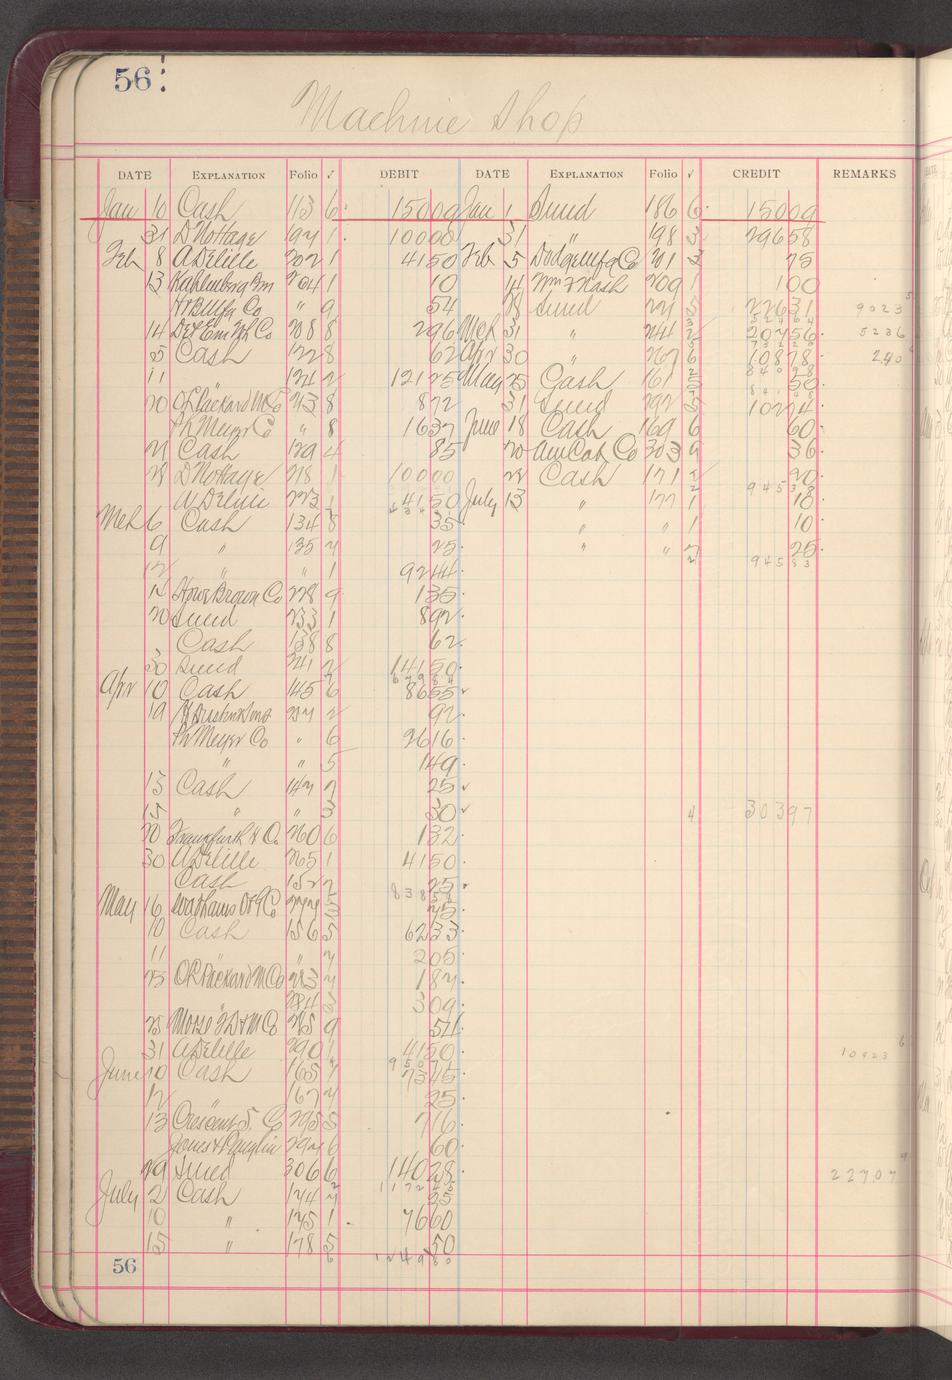 56
Machine Shop
DATE EXPLANATION Folio ✓ DEBIT DATE EXPLANATION Folio ✓ CREDIT REMARKS
Jan 10 Cash 113 6 15009 Jan 1 Sund 186 6 15009
31 D Nottage 194 1 10000 31 " 198 3 29658
Feb 8 A Delille 202 1 4150 Feb 5 Dodge Mfg Co 201 3 75
13 Kahlenberg Bros 204 1 10 14 Wm F Nash 209 1 100
" 9 54 28 Sund 221 5 22631 9023
14 288 8 296 Mch 31 " 241 2 20756 5236
25 Cash 122 8 62 Apr 30 " 267 6 10878 240
11 " 124 2 12125 May 25 Cash 161 5 50
20 O L Packard M Co 213 8 872 31 Sund 292 5 10274
Ph Meyer Co " 8 1637 June 18 Cash 169 6 60
21 Cash 129 4 85 20 Am Can Co 303 9 36
28 D Nottage 218 1 10000 28 Cash 171 2 20
A Delille 223 1 4150 July 13 " 177 1 18
Mch 6 Cash 134 8 35 " " 1 10
9 " 135 4 25 " " 7 25
12 " " 1 9244 94583
14 Howe Brown Co 228 9 135
20 Sund 233 1 892
Cash 138 8 62
30 Sund 241 2 14150
Apr 10 Cash 145 6 8655
19 92
Ph Meyer Co " 6 2616
" " 5 149
13 Cash 147 7 25
15 " " 3 30 4 30397
20 Frankfurth H Co 260 6 132
30 A Delille 265 1 4150
Cash 152 2 25
May 16 45
10 Cash 156 5 6233
11 " " 4 205
23 O L Packard M Co 283 4 184
284 3 309
25 Morse T D & M Co 285 9 51
31 A Delille 290 1 4150 10923
June 10 Cash 165 7 7345
12 " 167 4 25
13 Crescent S. Co 295 5 716
Jones & Laughlin 294 6 60
29 Sund 306 6 14028 22707
July 2 Cash 174 4 25
10 " 175 1 7660
15 " 178 5 50
56 124980